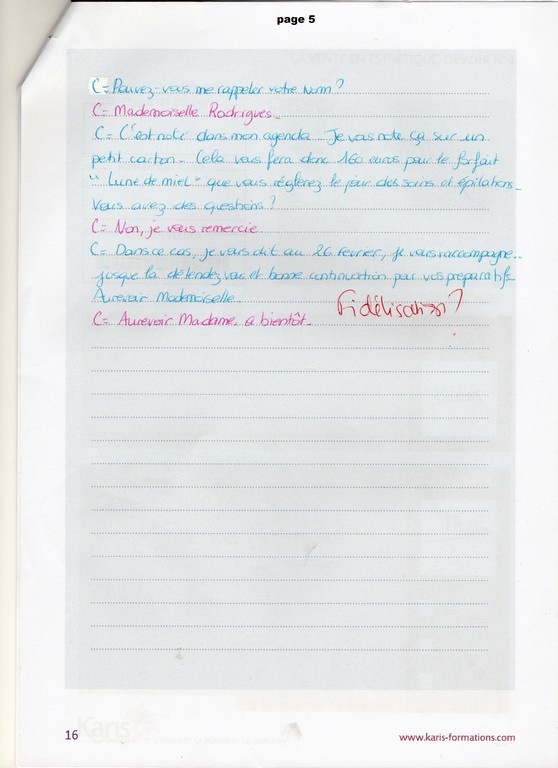 page 5
C= Pouvez-vous me rappeler votre nom ?
C= Mademoiselle Rodrigues.
C= C'est noté dans mon agenda. Je vous note ça sur un
petit carton. Cela vous fera donc 160 euros pour le forfait
"Lune de miel" que vous réglerez le jour des soins et épilations.
Vous avez des questions ?
C= Non, je vous remercie.
C= Dans ce cas, je vous dit au 26 février, je vous raccompagne..
jusque là détendez vous et bonne continuation pour vos préparatifs.
Aurevoir Mademoiselle.
C= Aurevoir Madame. a bientôt.
Fidélisation ?
16
Karis
www.karis-formations.com